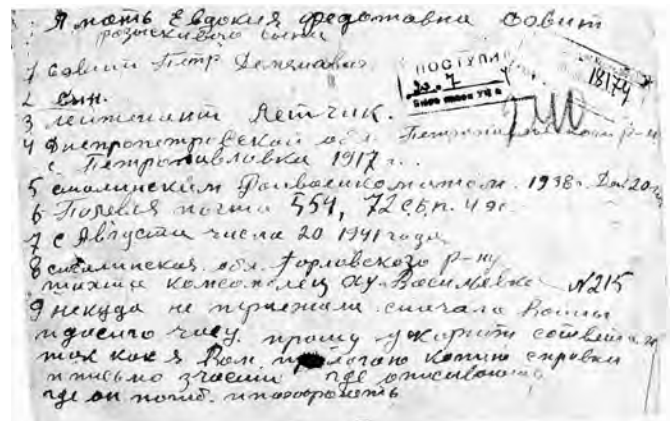 Я мать Евдокия Федотовна Совит
розыскиваю сына
1 Совит Петр Демянович
2 сын.
3 лейтенант Летчик.
4 Днепропетровская обл. Петропавловский р-н
с. Петропавловка 1917 г.
5 сталинским Райвоенкоматом. 1938 г.
6 Полевая почта 554, 72 с.б.п. 4 
7 с Августа числа 20 1941 года
8 сталинская обл. Горловского р-ну
шахта комсомолец Василевка N 215
9 некуда не приежала сначала Войны
идосиго часу. прошу ускорить
так как я Вам копию справки
и письмо зчасти где описываю
где он погиб. и похоронеть
ПОСТУПИЛ
30. 7
18174